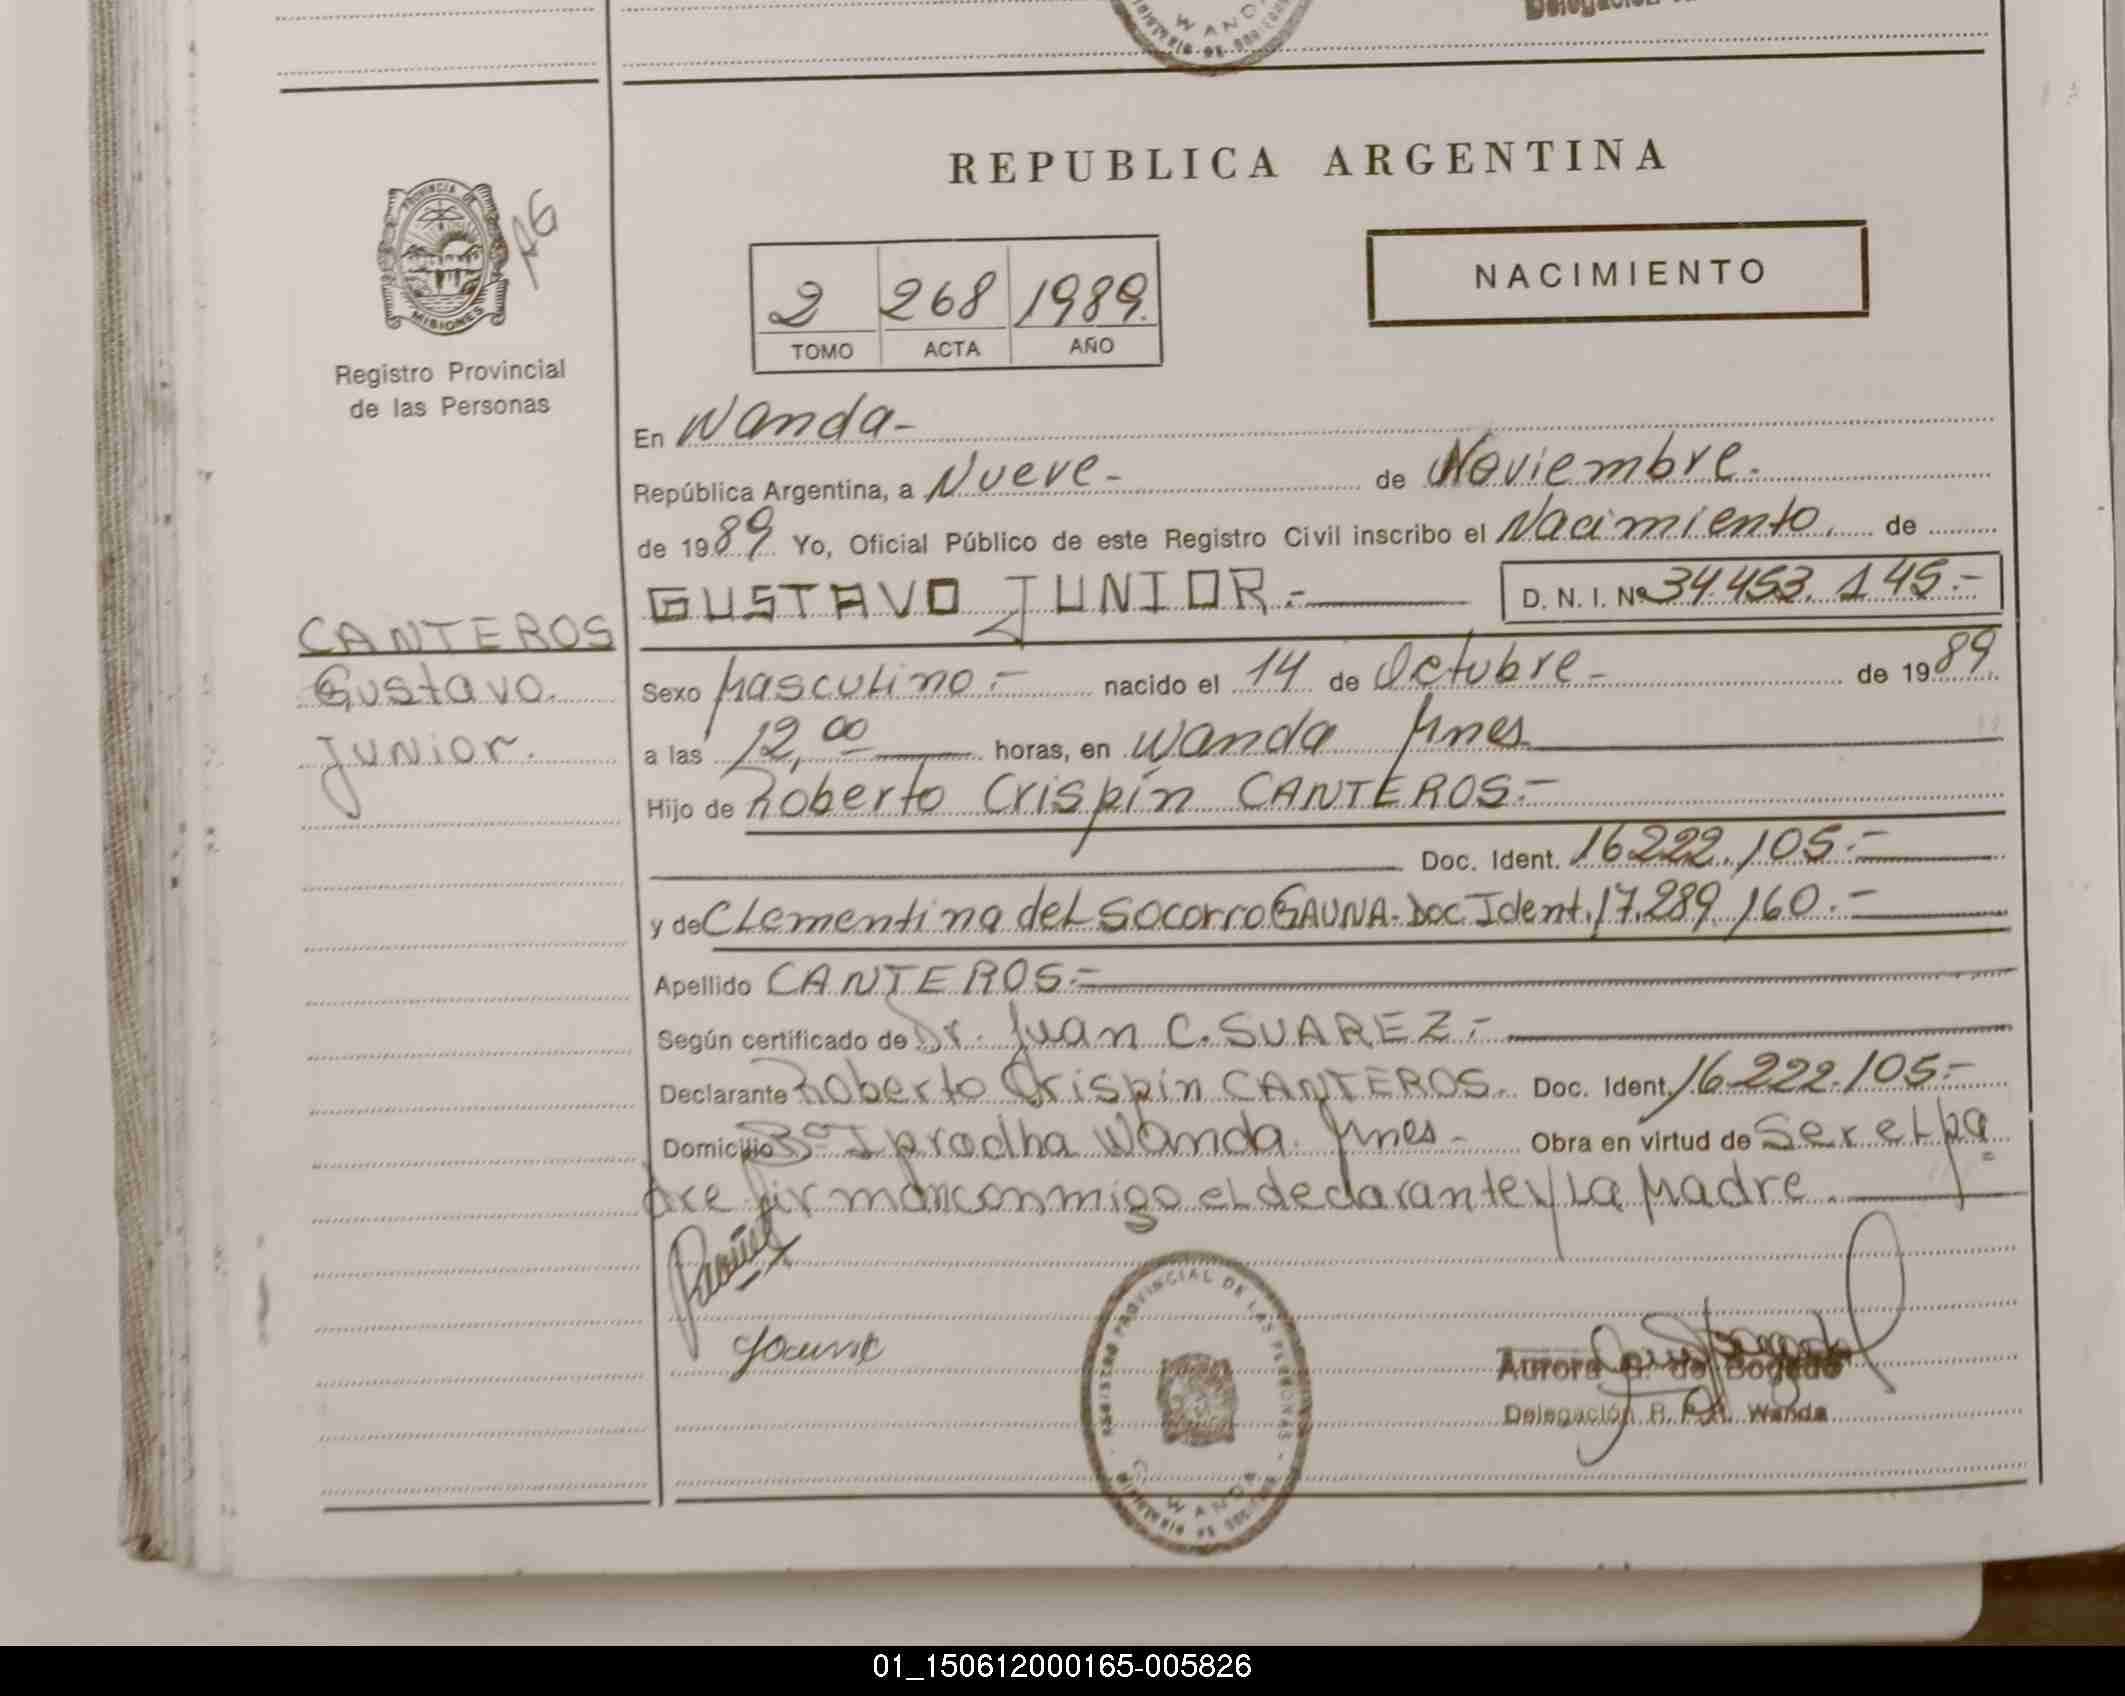 WANDA
Delegación
REPUBLICA ARGENTINA
PROVINCIA DE
MISIONES
AG
NACIMIENTO
2 268 1989.
TOMO ACTA AÑO
Registro Provincial
de las Personas
En Wanda-
República Argentina, a Nueve- de Noviembre.
de 1989 Yo, Oficial Público de este Registro Civil inscribo el Nacimiento. de
GUSTAVO JUNIOR.- D. N. I. Nº 34.453.145.-
CANTEROS
Gustavo
Junior.
Sexo Masculino.- nacido el 14 de Octubre- de 1989
a las 12,00 horas, en Wanda Mnes
Hijo de Roberto Crispín CANTEROS.-
Doc. Ident. 16.222.105.-
y de Clementina del Socorro GAUNA- Doc Ident. 17.289.160.-
Apellido CANTEROS.-
Según certificado de Dr. Juan C. SUAREZ.-
Declarante Roberto Crispín CANTEROS. Doc. Ident. 16.222.105.-
Domicilio Bº Iprodha Wanda. Mnes- Obra en virtud de Ser el pa
dre firman conmigo el declarante y La Madre.
REGISTRO PROVINCIAL DE LAS PERSONAS
WANDA
Aurora G. de Bogado
Delegación R. P. P. Wanda
01_150612000165-005826